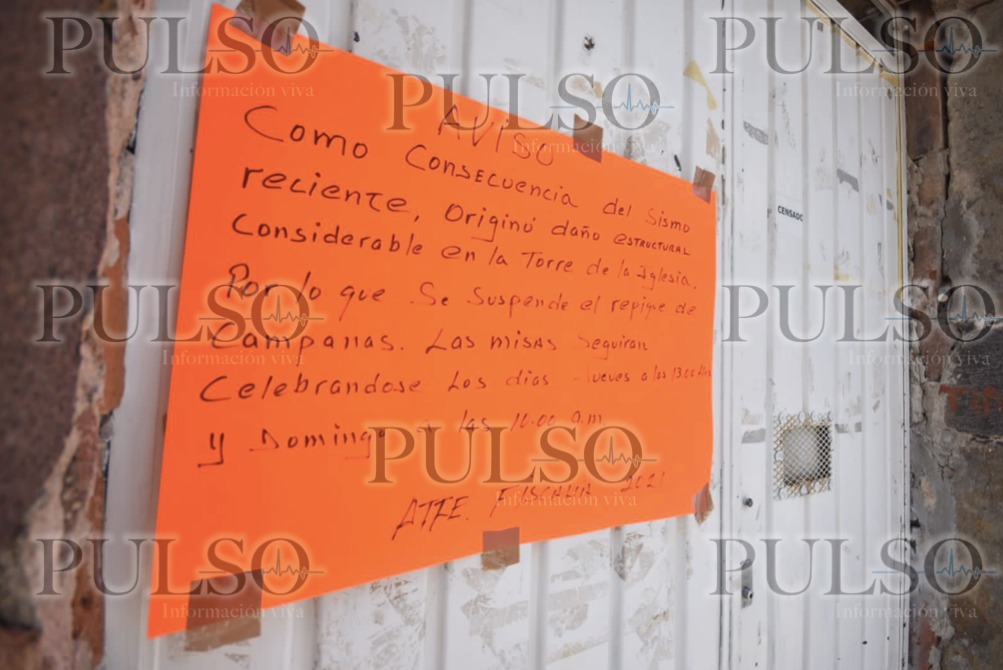 AVISO
Como Consecuencia del Sismo
reciente, originó daño estructural
Considerable en la Torre de la Iglesia.
Por lo que Se Suspende el repique de
Campanas. Las misas Seguiran
Celebrandose Los dias Jueves a las 13:00 Hrs
y Domingo a las 10:00 a.m
ATTE. FISCALIA 2021
CENSADO
PULSO
Información viva
PULSO
Información viva
PULSO
Información viva
PULSO
Información viva
PULSO
Información viva
PULSO
Información viva
PULSO
Información viva
PULSO
Información viva